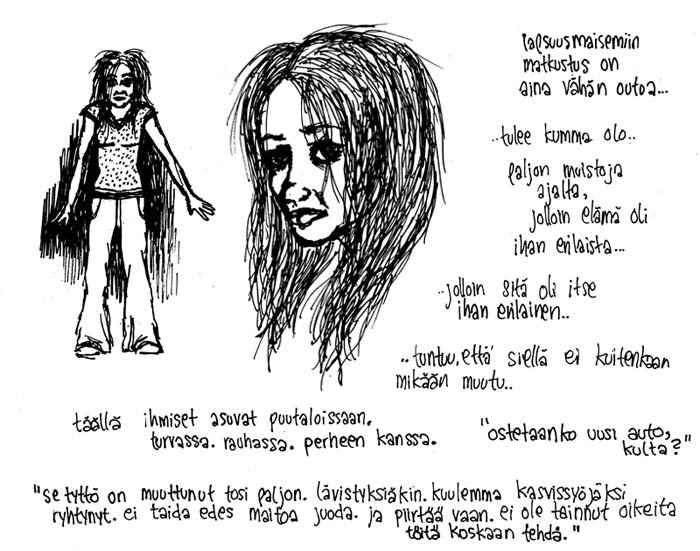 lapsuusmaisemiin
matkustus on
aina vähän outoa...
..tulee kumma olo..
paljon muistoja
ajalta,
jolloin elämä oli
ihan erilaista...
..jolloin sitä oli itse
ihan erilainen..
..tuntuu, että siellä ei kuitenkaan
mikään muutu..
täällä ihmiset asuvat puutaloissaan.
turvassa. rauhassa. perheen kanssa.
"ostetaanko uusi auto,
kulta?"
"se tyttö on muuttunut tosi paljon. lävistyksiäkin. kuulemma kasvissyöjäksi
ryhtynyt. ei taida edes maitoa juoda. ja piirtää vaan. ei ole tainnut oikeita
töitä koskaan tehdä."